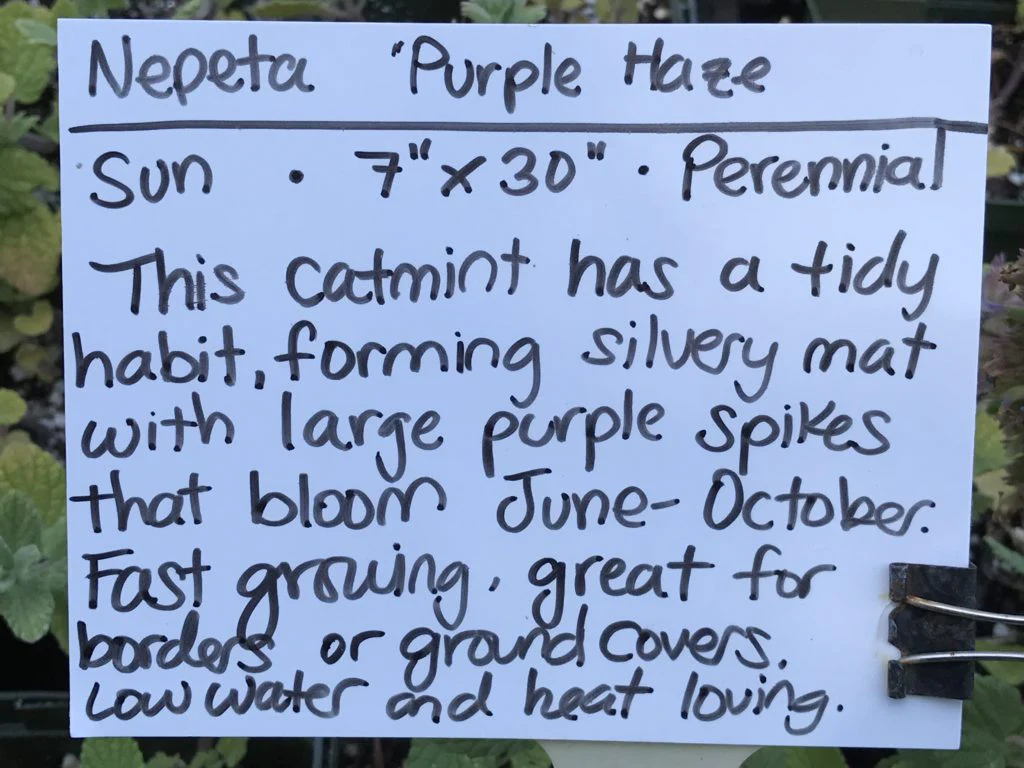 Nepeta "Purple Haze
Sun • 7" x 30" • Perennial
This catmint has a tidy
habit, forming silvery mat
with large purple spikes
that bloom June-October.
Fast growing, great for
borders or ground covers.
Low water and heat loving.